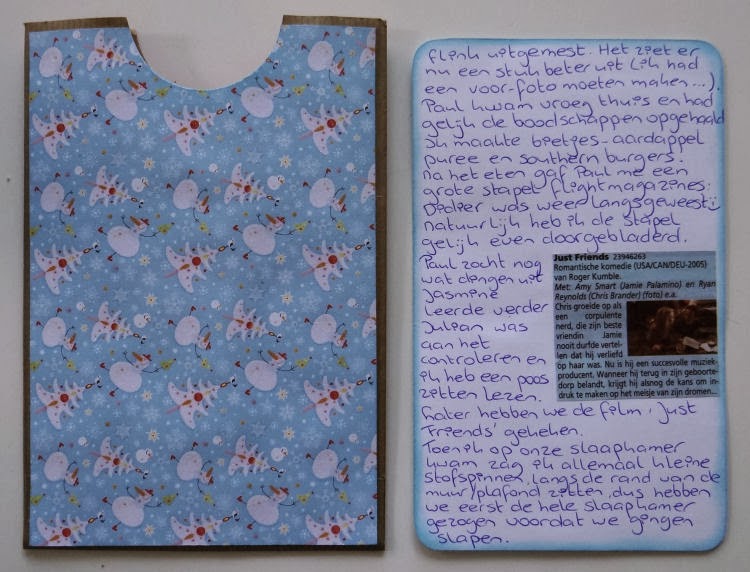 flink uitgemest. Het ziet er
nu een stuk beter uit (ik had
een voor-foto moeten maken...).
Paul kwam vroeg thuis en had
gelijk de boodschappen opgehaald
Ik maakte bietjes-aardappel
puree en southern burgers.
Na het eten gaf Paul me een
grote stapel flightmagazines:
Didier was weer langsgeweest;
natuurlijk heb ik de stapel
gelijk even doorgebladerd.
Paul zocht nog
wat dingen uit
Jasmine
leerde verder
Julian was
aan het
controleren en
ik heb een poos
zitten lezen.
Just Friends 23946263
Romantische komedie (USA/CAN/DEU-2005)
van Roger Kumble.
Met: Amy Smart (Jamie Palamino) en Ryan
Reynolds (Chris Brander) (foto) e.a.
Chris groeide op als
een corpulente
nerd, die zijn beste
vriendin Jamie
nooit durfde vertel-
len dat hij verliefd
op haar was. Nu is hij een succesvolle muziek-
producent. Wanneer hij terug in zijn geboorte-
dorp belandt, krijgt hij alsnog de kans om in-
druk te maken op het meisje van zijn dromen...
Later hebben we de film 'Just
Friends' gekeken.
Toen ik op onze slaapkamer
kwam zag ik allemaal kleine
stofspinnen langs de rand van de
muur/plafond zitten, dus hebben
we eerst de hele slaapkamer
gezogen voordat we gingen
slapen.